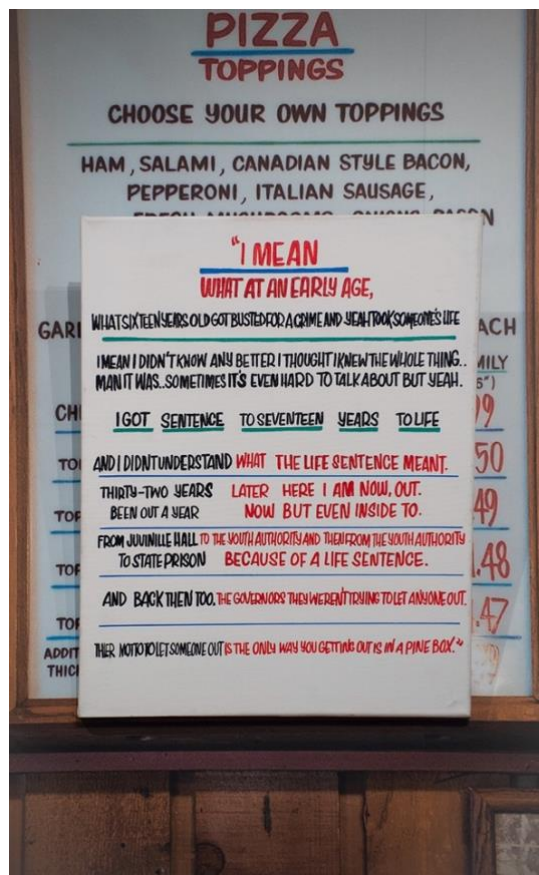 PIZZA
TOPPINGS
CHOOSE YOUR OWN TOPPINGS
HAM, SALAMI, CANADIAN STYLE BACON,
PEPPERONI, ITALIAN SAUSAGE,
"I MEAN
WHAT AT AN EARLY AGE,
WHAT SIXTEEN YEARS OLD GOT BUSTED FOR A CRIME AND YEAH TOOK SOMEONE'S LIFE
I MEAN I DIDN'T KNOW ANY BETTER I THOUGHT I KNEW THE WHOLE THING..
MAN IT WAS..SOMETIMES IT'S EVEN HARD TO TALK ABOUT BUT YEAH.
I GOT SENTENCE TO SEVENTEEN YEARS TO LIFE
AND I DIDNT UNDERSTAND WHAT THE LIFE SENTENCE MEANT.
THIRTY-TWO YEARS LATER HERE I AM NOW, OUT.
BEEN OUT A YEAR NOW BUT EVEN INSIDE TO.
FROM JUVINILLE HALL TO THE YOUTH AUTHORITY AND THEN FROM THE YOUTH AUTHORITY
TO STATE PRISON BECAUSE OF A LIFE SENTENCE.
AND BACK THEN TOO, THE GOVERNORS THEY WERENT TRYING TO LET ANYONE OUT.
THER MOTTO TO LET SOMEONE OUT IS THE ONLY WAY YOU GETTING OUT IS IN A PINE BOX."